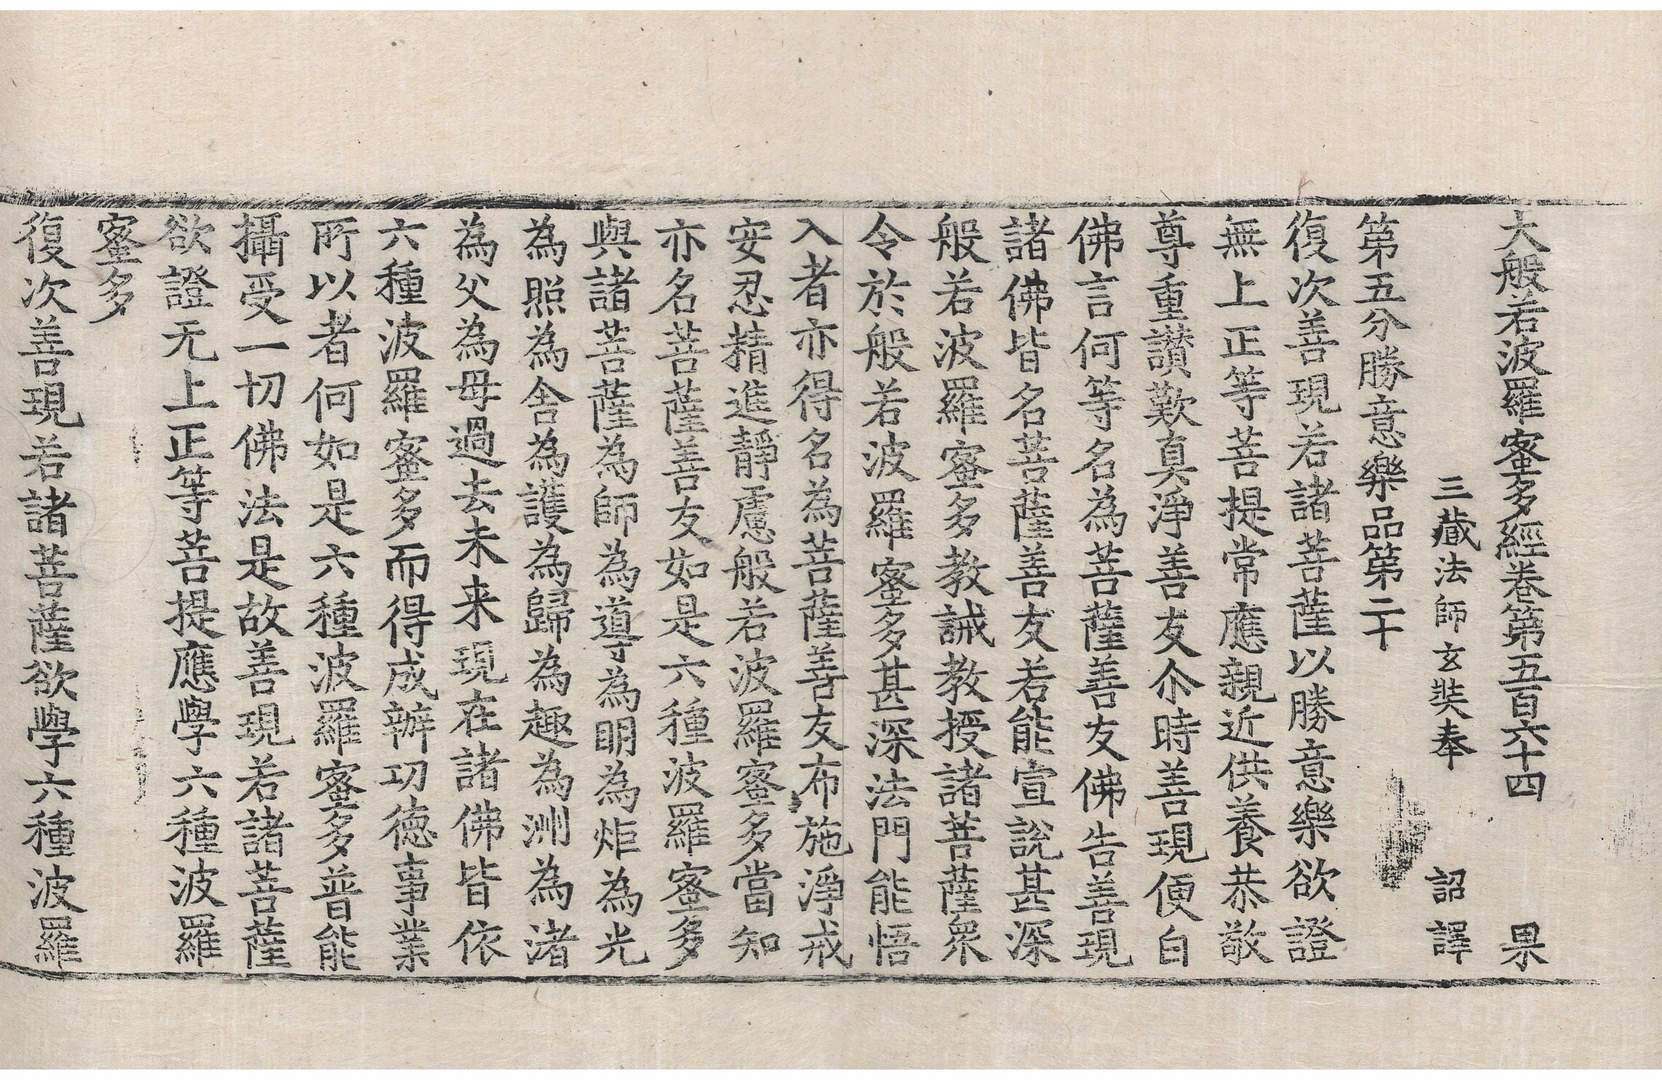 大般若波羅蜜多經卷第五百六十四 果
三藏法師玄奘奉 詔譯
第五分勝意樂品第二十
復次善現若諸菩薩以勝意樂欲證
無上正等菩提常應親近供養恭敬
尊重讃歎真淨善友尒時善現便白
佛言何等名為菩薩善友佛告善現
諸佛皆名菩薩善友若能宣說甚深
般若波羅蜜多教誡教授諸菩薩衆
令於般若波羅蜜多甚深法門能悟
入者亦得名為菩薩善友布施淨戒
安忍精進靜慮般若波羅蜜多當知
亦名菩薩善友如是六種波羅蜜多
與諸菩薩為師為導為明為炬為光
為照為舍為護為歸為趣為洲為渚
為父為母過去未来現在諸佛皆依
六種波羅蜜多而得成辦功德事業
所以者何如是六種波羅蜜多普能
攝受一切佛法是故善現若諸菩薩
欲證无上正等菩提應學六種波羅
蜜多
復次善現若諸菩薩欲學六種波羅